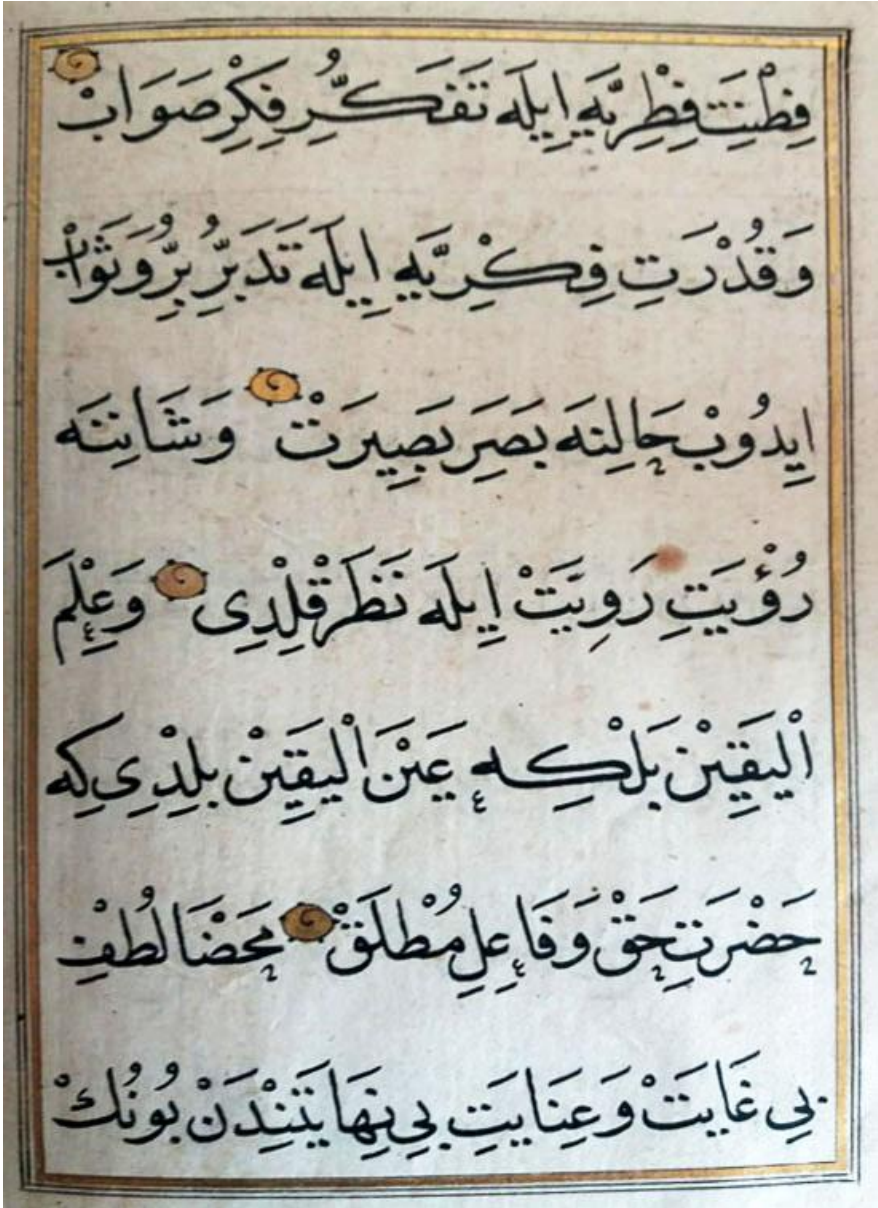 فِطْنَتِ فِطْرِيَّهِ اِيلَه تَفَكُّرِ فِكْرِ صَوَابْ
وَقُدْرَتِ فِكْرِيَّهِ اِيلَه تَدَبُّرِ بِرُّ وَثَوَابْ
اِيدُوبْ حَالِنَه بَصَرِ بَصِيرَتْ وَشَانِنَه
رُؤْيَتِ رَوِيَّتْ اِيلَه نَظَرْ قِلْدِى وَعِلْمَ
الْيَقِينْ بَلْكِه عَيْنَ الْيَقِينْ بِلْدِى كِه
حَضْرَتِ حَقْ وَفَاعِلِ مُطْلَقْ مَحْضَا لُطْفِ
بِى غَايَتْ وَعِنَايَتِ بِى نِهَايَتِنْدَنْ بُونُكْ